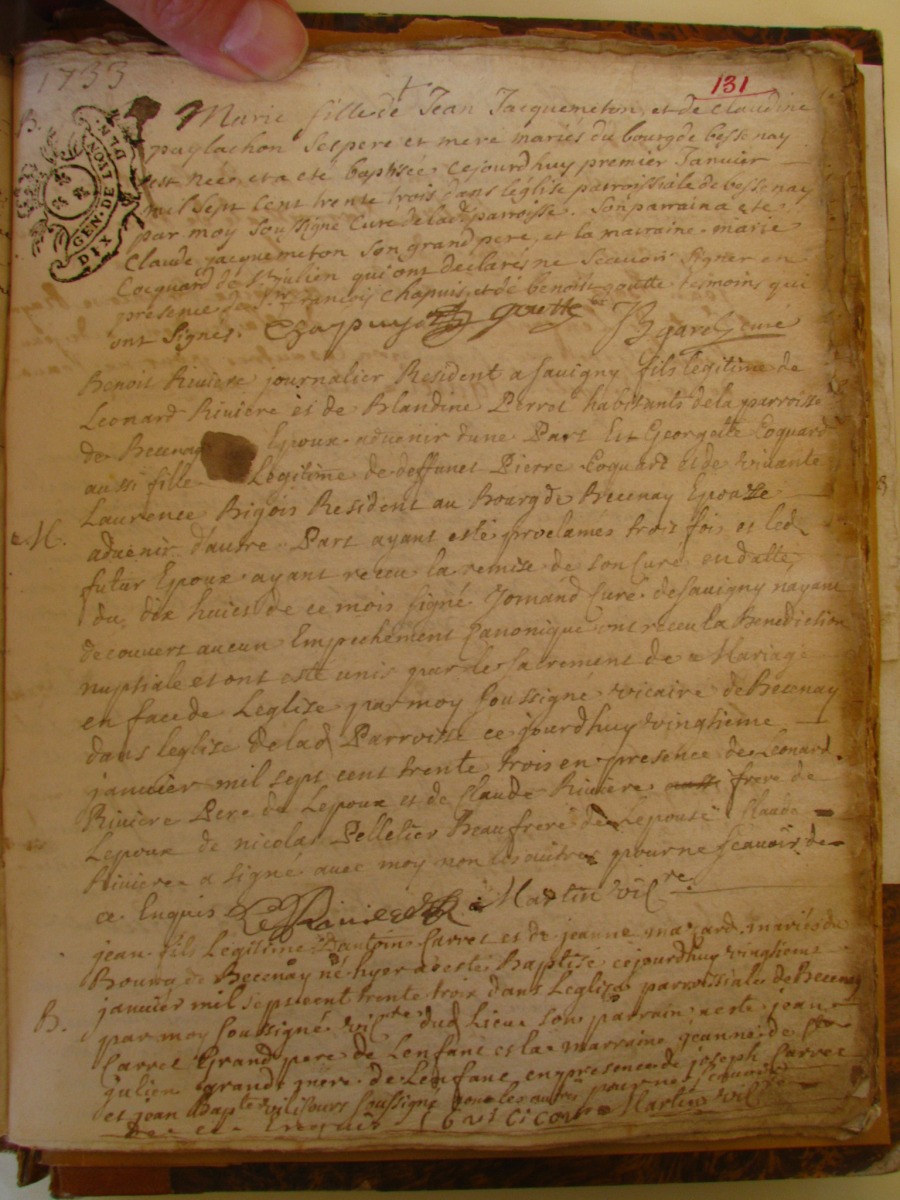 1733
131
B.
GEN. DE LYON
DIX
Marie fille de Jean Jacquemeton, et de Claudine
puylachon ses pere et mere mariés du bourg de bessenay
est née, et a eté baptisée cejourdhuy premier Janvier
mil sept cent trente trois dans leglise parroissiale de bessenay
par moy soussigné Curé de lad parroisse. Son parrain a eté
Claude jacquemeton son grand pere, et la marraine marie
Cocquard de St julien qui ont declarés ne scavoir signer en
presence de Sr francois Chapuis, et de benoist goutte temoins qui
ont signés. Chappuys goutte curé
Benoit Riviere journalier Resident a Savigny fils legitime de
Leonard Riviere et de Blandine Perrot habitants de la parroisse
de Becenay Epoux advenir dune Part Et Georgette Coquard
aussi fille Legitime de deffunct Pierre Coquard et de vivante
Laurence Bigois Resident au Bourg de Becenay Epouse
M.
advenir dautre Part ayant esté proclamés trois fois et led
futur Epoux ayant receu la remise de son Curé en datte
du dix huict de ce mois signé Jomand Curé de Savigny nayant
decouvert aucun Empechement Canonique ont receu la Benediction
nuptiale et ont esté unis par le sacrement de Mariage
en face de Leglise par moy soussigné vicaire de Becenay
dans leglise de lad Parroisse ce jourdhuy vingtieme
janvier mil sept cent trente trois en presence de Leonard
Riviere Pere de Lepoux et de Claude Riviere frere de
Lepoux de nicolas Pelletier Beaufrere de Lepouse Claude
Riviere a signé avec moy non les autres pour ne scavoir de
ce Enquis C Riviere Martin vicre
jean fils Legitime Dantoine Carret et de jeanne mazard mariés du
Bourg de Becenay né hyer a esté Baptisé cejourdhuy vingtieme
janvier mil sept cent trente trois dans Leglise parroissiale de Becenay
B.
par moy soussigné dud Lieu son parrain a esté jean
Carret Grand pere de Lenfant et la marraine jeanne de St
julien grand mere de Lenfant en presence de joseph Carret
et jean Bapte soussigné non les autres pour ne scavoir
de ce enquis Martin vic